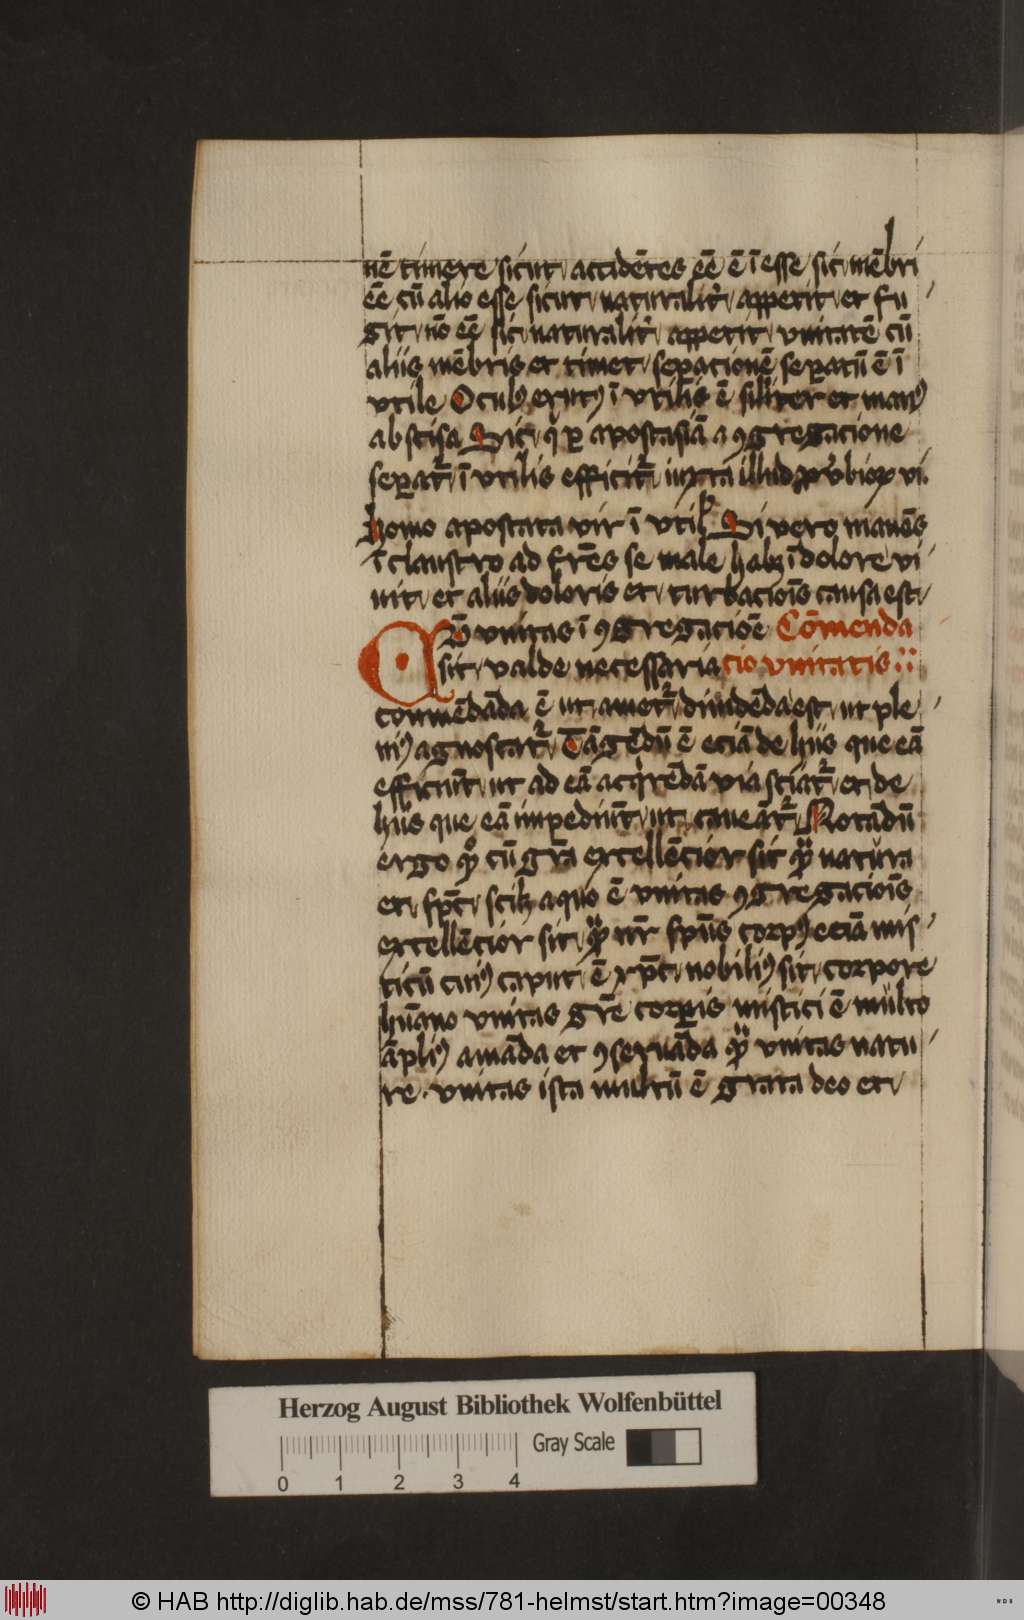 nē timere sicut accidētes eē ē ī esse sic mēbri
eē cū alio esse sicut naturalit̉ appetit et fu
git nō eē sic naturalit̉ appetit vnitatē cū
aliis mēbris et timet separacionē separatū ē ī
vtile Oculꝰ erutꝰ ī vtilis ē similiter et manꝰ
abscisa Sic qͥ ꝑ apostasiā a ꝯgregacione
separat̉ ī vtilis efficit̉ iuxta illud ꝓv̉bioꝝ vi.
homo apostata vir ī vtilꝭ Si vero manēs
ī claustro ad fr̄es se male habꝫ ī dolore vi
uit et aliis doloris et turbacioīs causa est
Qd̄ vnitas ī ꝯgregacioē Cōmenda
sit valde necessaria cio vnitatis
conmēdāda ē ut amet̉ diuidēda est ut ple
niꝰ agnoscat̉ Tāgēdū ē eciā de hiis que eā
efficiūt ut ad eā acqͥrēdā via sciat̉ et de
hiis que eā impediūt ut caueāt̉ Notādū
ergo qͦ cū gr̄a excellēcior sit qͣ natura
et sp̄c scilꝫ a quo ē vnitas ꝯgregacioīs
excellēcior sit qͣ nr̄ sp̄us corpꝰ eciā mis
ticū cuiꝰ caput ē xp̄c nobiliꝰ sit corpore
hūano vnitas gr̄e corꝑis mistici ē multo
āpliꝰ amāda et ꝯseruāda qͣ vnitas natu
re. vnitas ista multū ē grata deo et
Herzog August Bibliothek Wolfenbüttel
Gray Scale
0 1 2 3 4
© HAB http://diglib.hab.de/mss/781-helmst/start.htm?image=00348